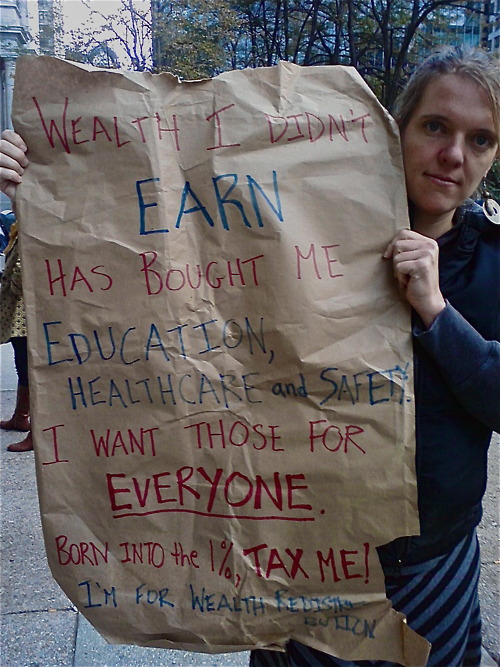 WEALTH I DIDN'T
EARN
HAS BOUGHT ME
EDUCATION,
HEALTHCARE and SAFETY.
I WANT THOSE FOR
EVERYONE.
BORN INTO the 1%, TAX ME!
I'M FOR WEALTH REDISTRI-
BUTION